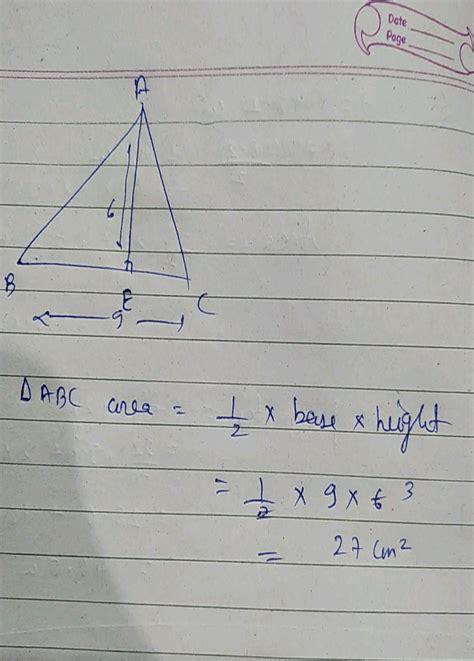 Date
Page
A
6
B
E
C
9
Δ ABC area = 1/2 × base × height
= 1/2 × 9 × 6 3
= 27 cm²